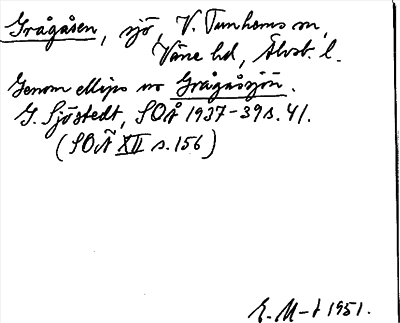 Grågåsen, sjö, V. Tunhems sn,
Väne hd, Älvsb. l.
Genom ellips av Grågåsjön.
G. Sjöstedt, SOÅ 1937-39 s. 41.
(SOÅ XII s. 156)
E. M-t 1951.